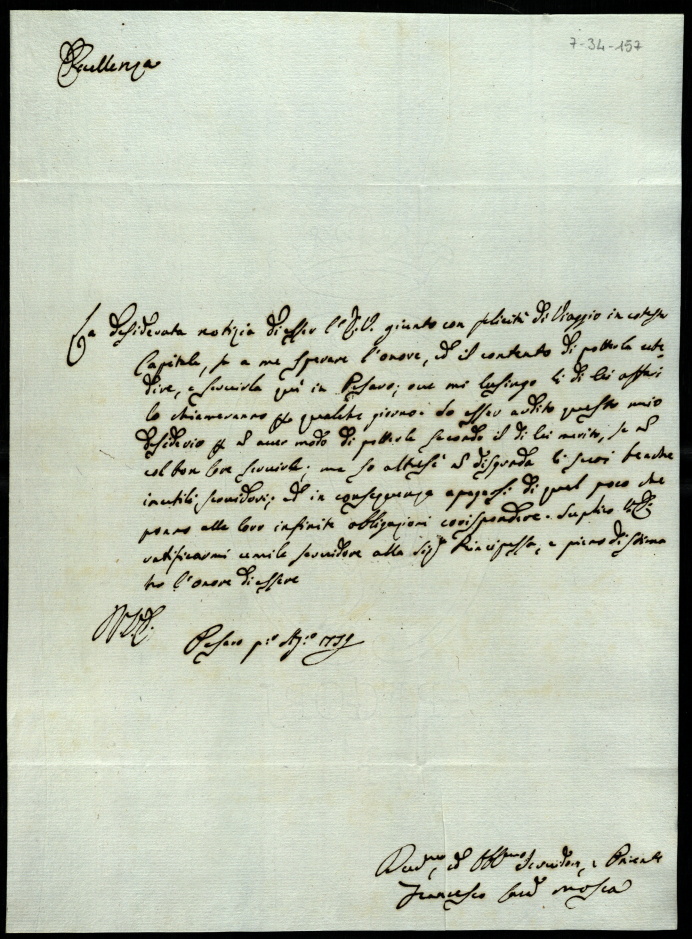 7-34-157
Eccellenza
La desiderata notizia di esser l'E.V. giunto con felicità di Viaggio in cotesta
Capitale, fa a me sperare l'onore, ed il contento di poterla
, e servirla quì in Pesaro; ove mi lusingo li di lei affari
lo chiameranno per qualche giorno. Io esser ardito questo mio
desiderio per non aver modo di poterla secondo il di lei merito, se non
col bon core servirla; ma so altresì non disgrada li suoi benche
inutili servidori; ed in conseguenza apagasi di quel poco che
ponno alle loro infinite obligazioni corispondere. Suplico V.E.
ratificarmi umile servidore alla Sig.ra Principessa, e pieno di stima
ho l'onore di essere
Di V.E.
Pesaro p.o 1759
Dev.mo, ed Obb.mo Servidor, e Parente
Francesco Card. Mosca